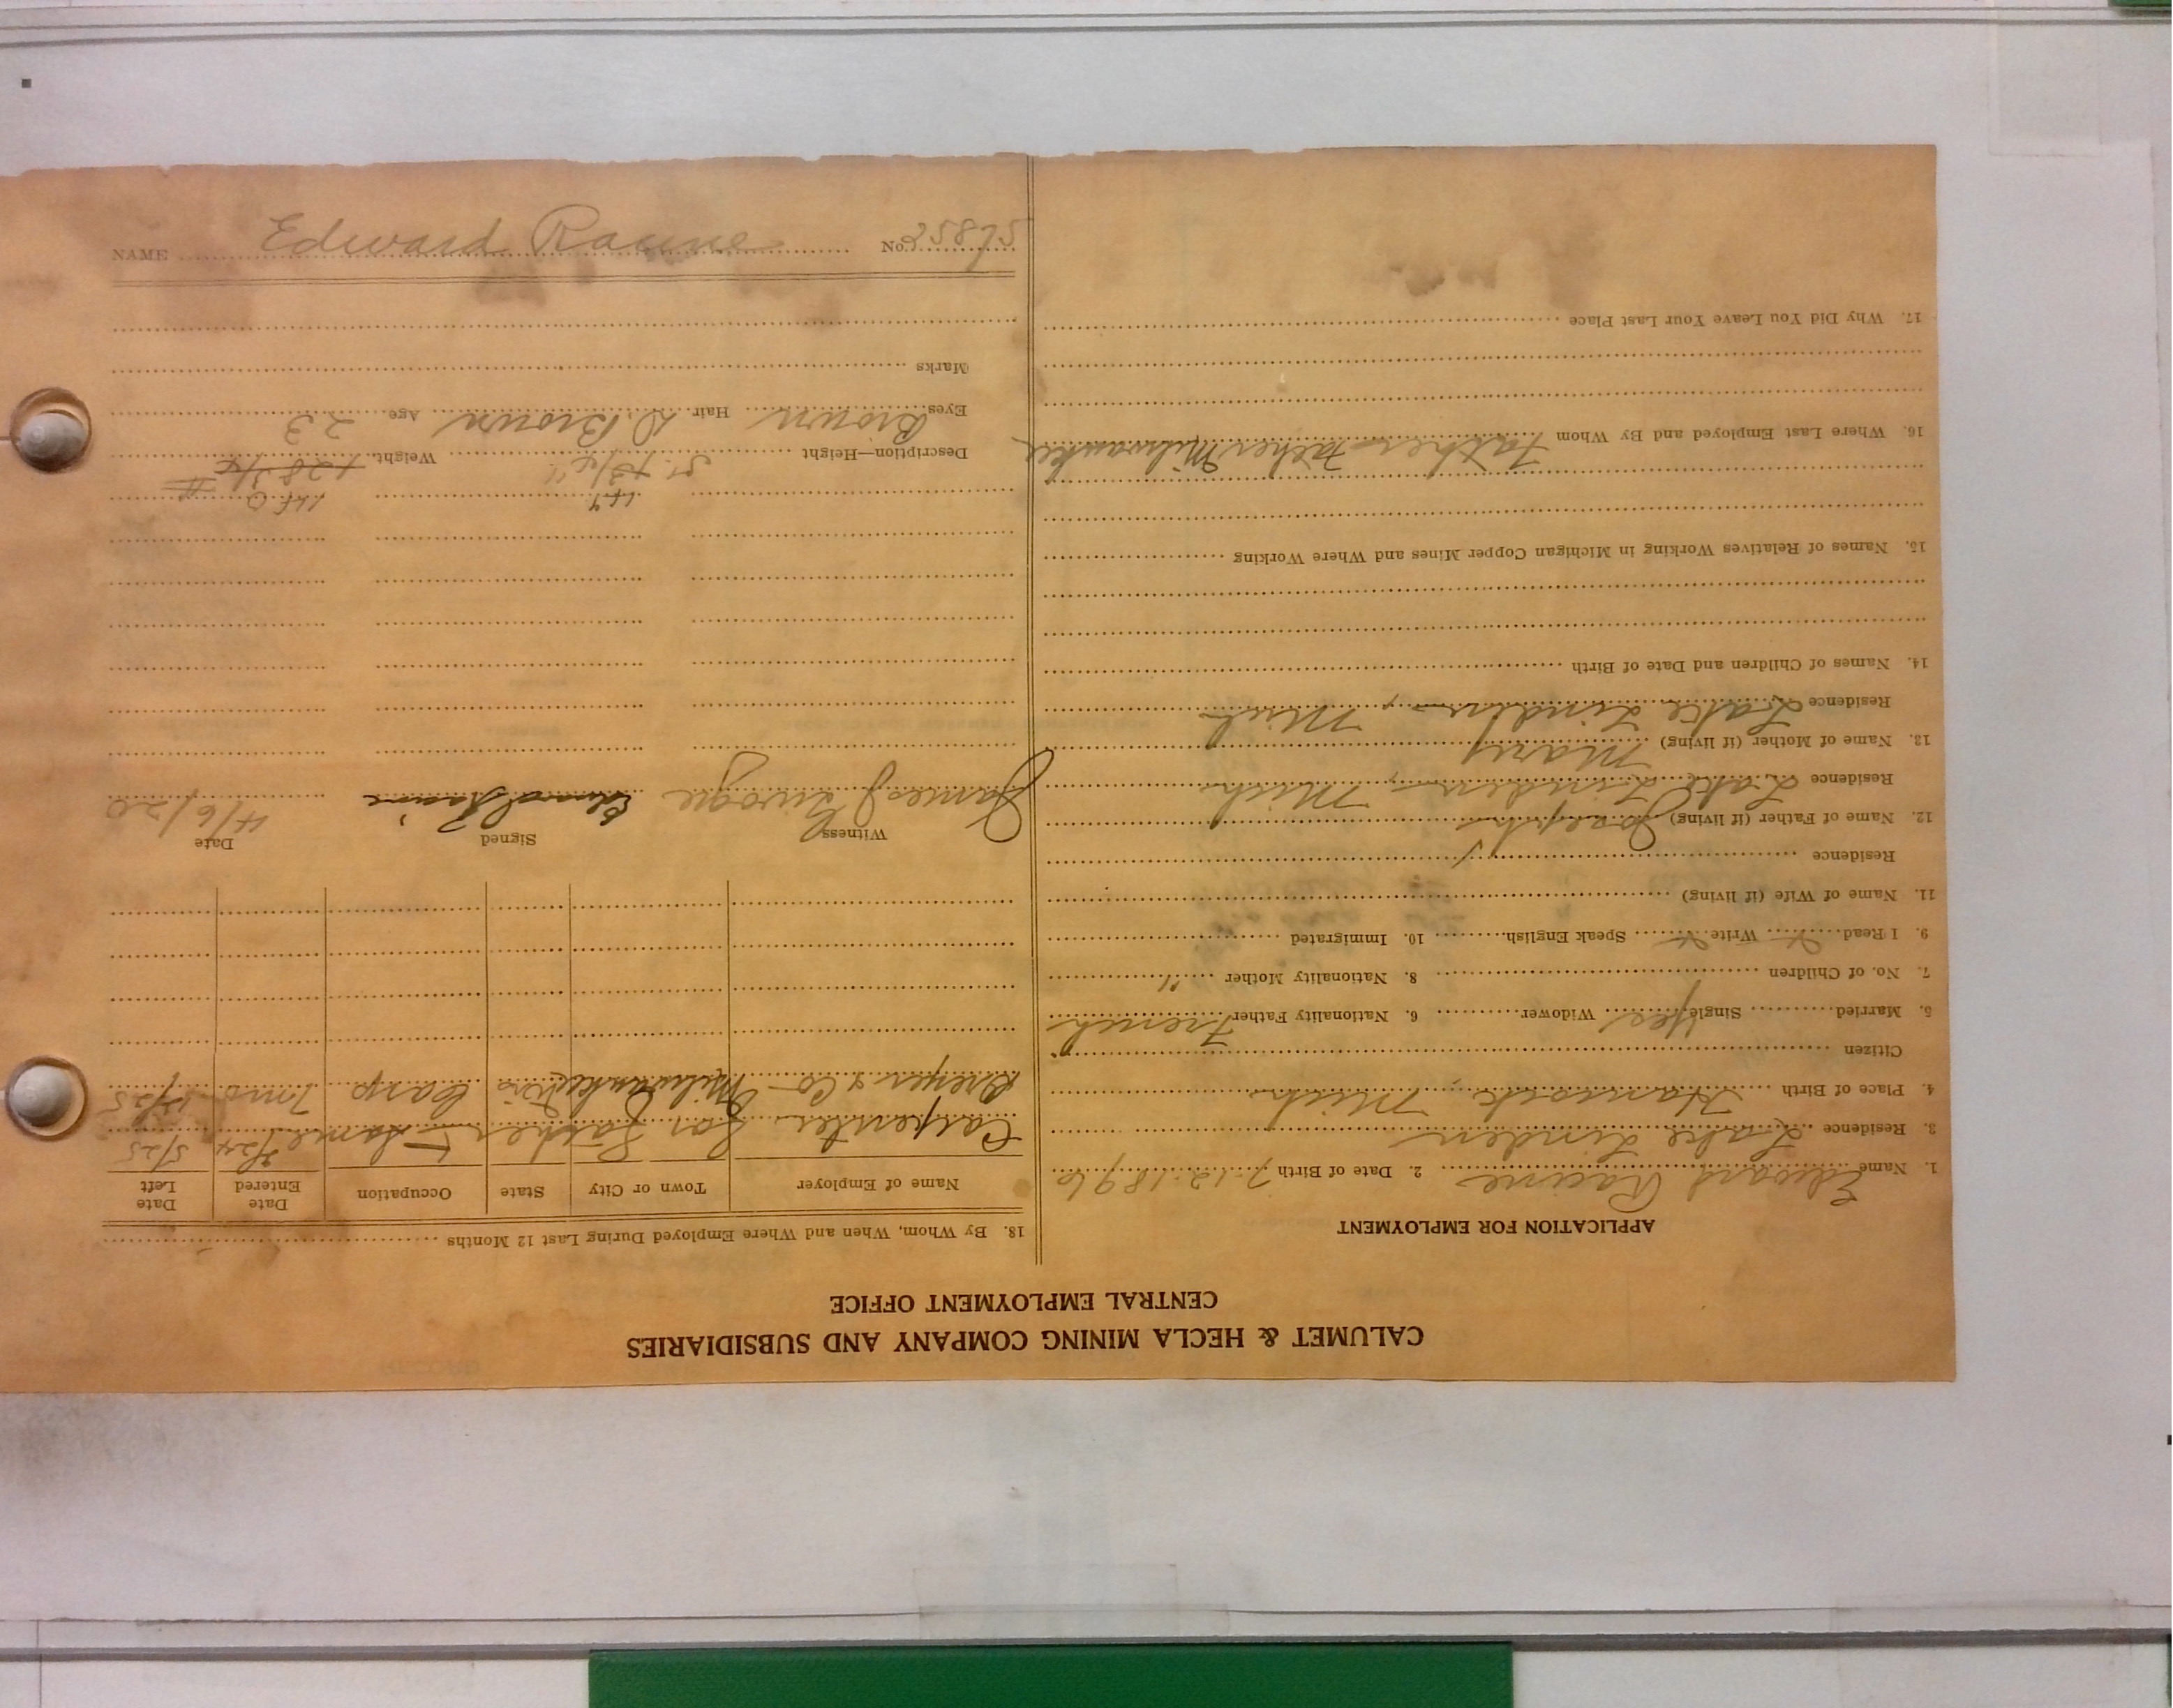 CALUMET & HECLA MINING COMPANY AND SUBSIDIARIES
CENTRAL EMPLOYMENT OFFICE
APPLICATION FOR EMPLOYMENT
1. Name Edward Racine 2. Date of Birth 7-12-1896
3. Residence Lake Linden
4. Place of Birth Hancock, Mich.
Citizen
5. Married Single Yes Widower 6. Nationality Father French
7. No. of Children 8. Nationality Mother "
9. I Read Write Speak English 10. Immigrated
11. Name of Wife (if living)
Residence
12. Name of Father (if living) Joseph
Residence Lake Linden, Mich.
13. Name of Mother (if living) Mary
Residence Lake Linden, Mich
14. Names of Children and Date of Birth
15. Names of Relatives Working in Michigan Copper Mines and Where Working
16. Where Last Employed and By Whom Father Milwaukee
17. Why Did You Leave Your Last Place
18. By Whom, When and Where Employed During Last 12 Months
Name of Employer Town or City State Occupation Date Entered Date Left
Carpenter for Father same 5/25
& Co Milwaukee Wis Carp 7 mo
Witness Signed Date
James J Edward Racine 4/6/20
140
Description—Height Weight
Eyes Brown Hair D. Brown Age 23
Marks
NAME Edward Racine No. 25875